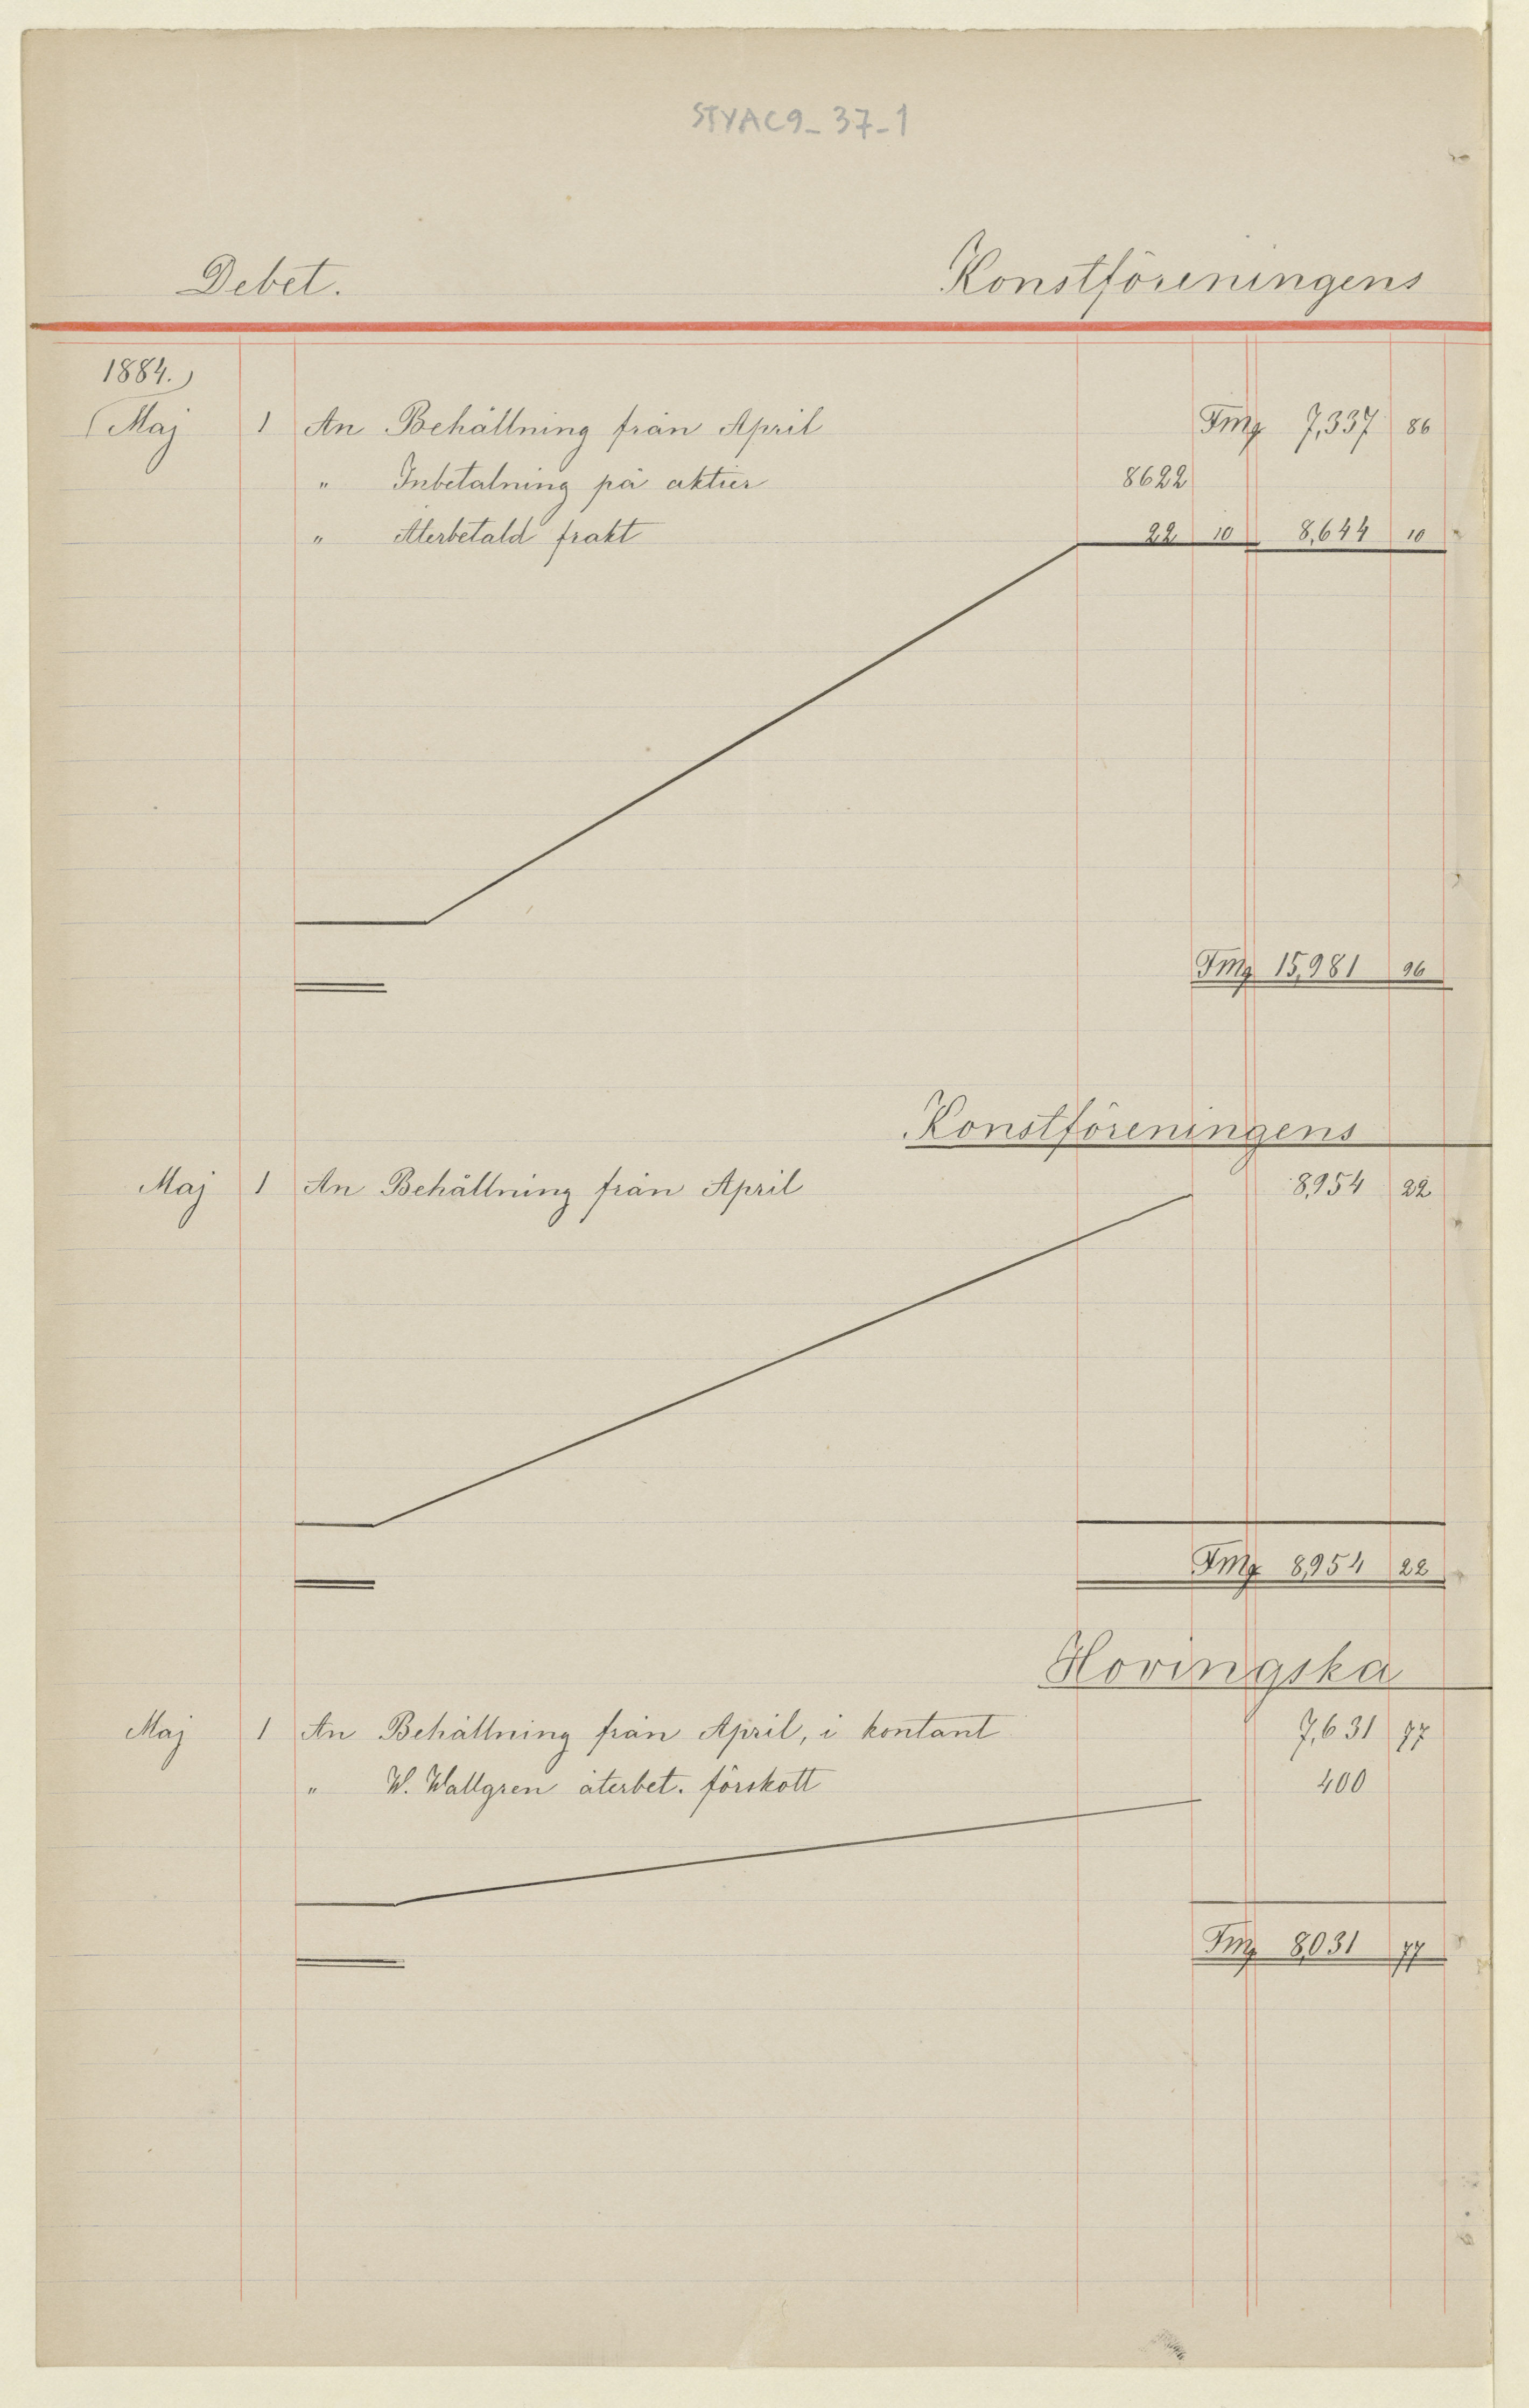 STYAC9_37-1
Debet. Konstföreningens
1884.
Maj 1 An Behållning från April Fmg 7,337 86
" Inbetalning på aktier 8622
" Återbetald frakt 22 10 8,644 10
Fmg 15,981 96
Konstföreningens
Maj 1 An Behållning från April 8,954 22
Fmg 8,954 22
Hovingska
Maj 1 An Behållning från April, i kontant 7,631 77
" W. Wallgren återbet. förskott 400
Fmg 8,031 77